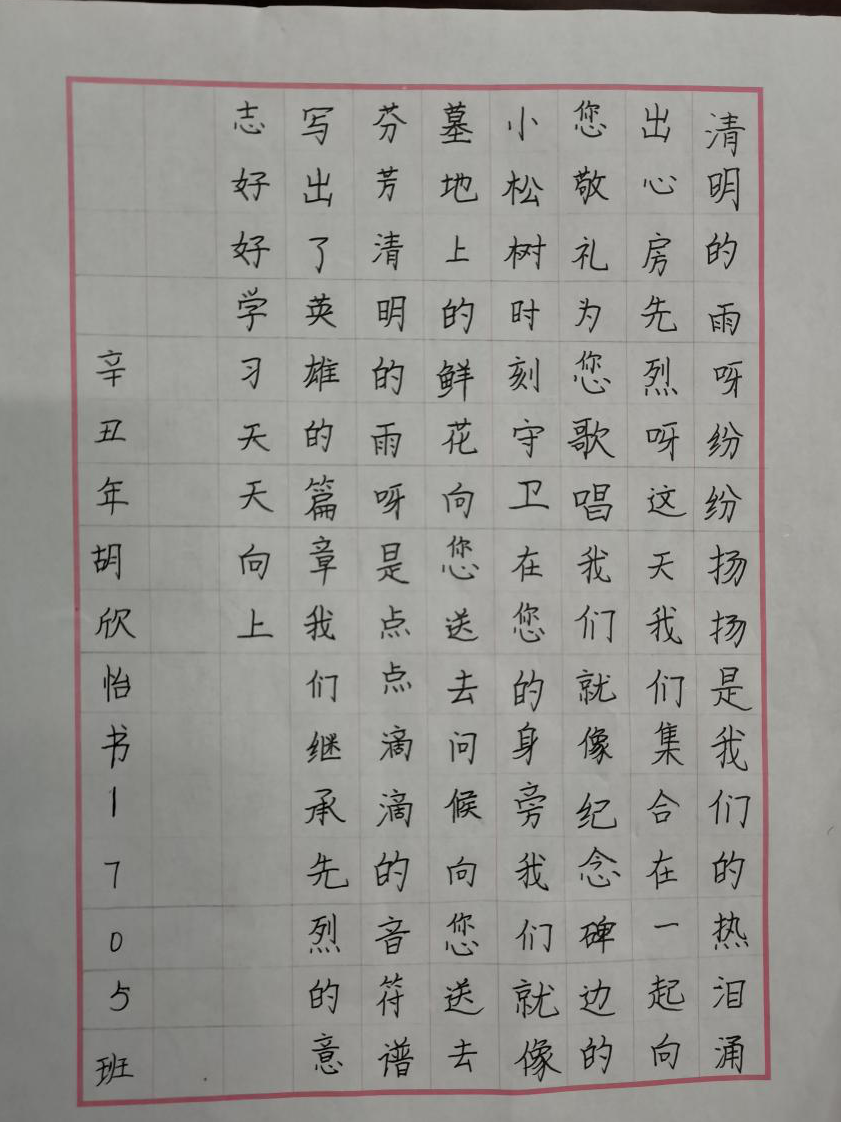 清明的雨呀纷纷扬扬是我们的热泪涌
出心房先烈呀这天我们集合在一起向
您敬礼为您歌唱我们就像纪念碑边的
小松树时刻守卫在您的身旁我们就像
墓地上的鲜花向您送去问候向您送去
芬芳清明的雨呀是点点滴滴的音符谱
写出了英雄的篇章我们继承先烈的意
志好好学习天天向上
辛丑年胡欣怡书1705班